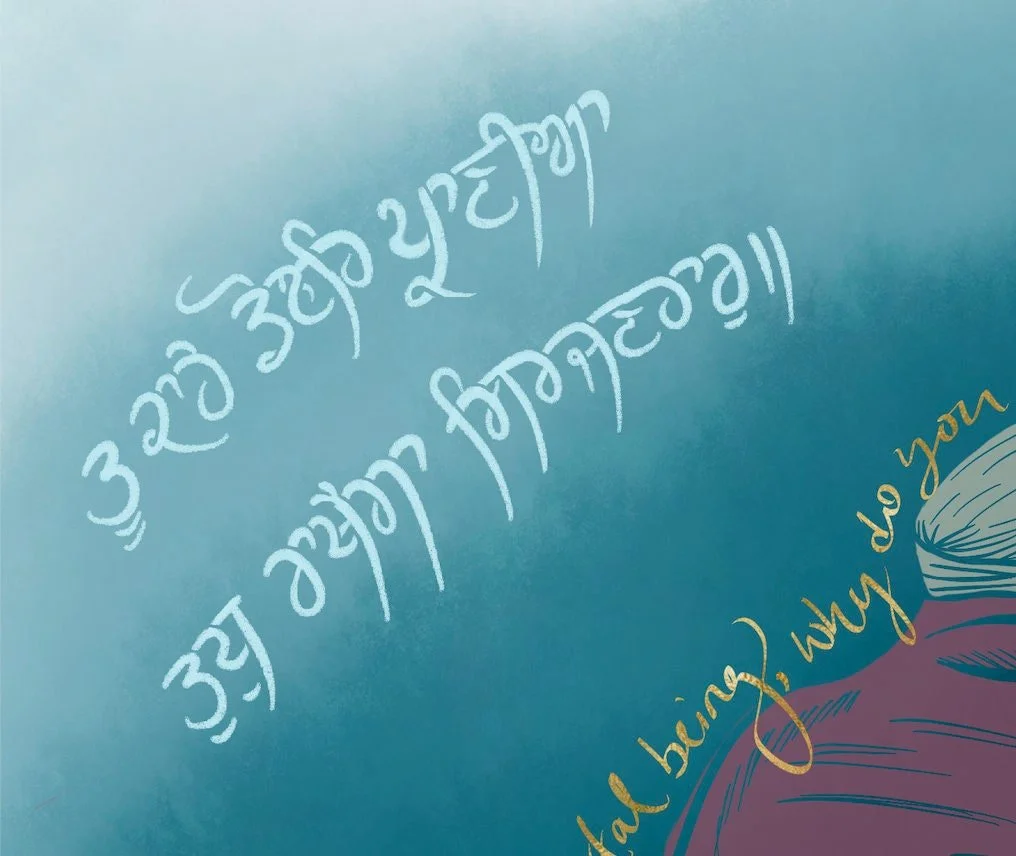 ਤੂ ਕਾਹੇ ਡੋਲਹਿ ਪ੍ਰਾਣੀਆ
ਤੁਧੁ ਰਾਖੈਗਾ ਸਿਰਜਣਹਾਰੁ॥
tal being, why do you